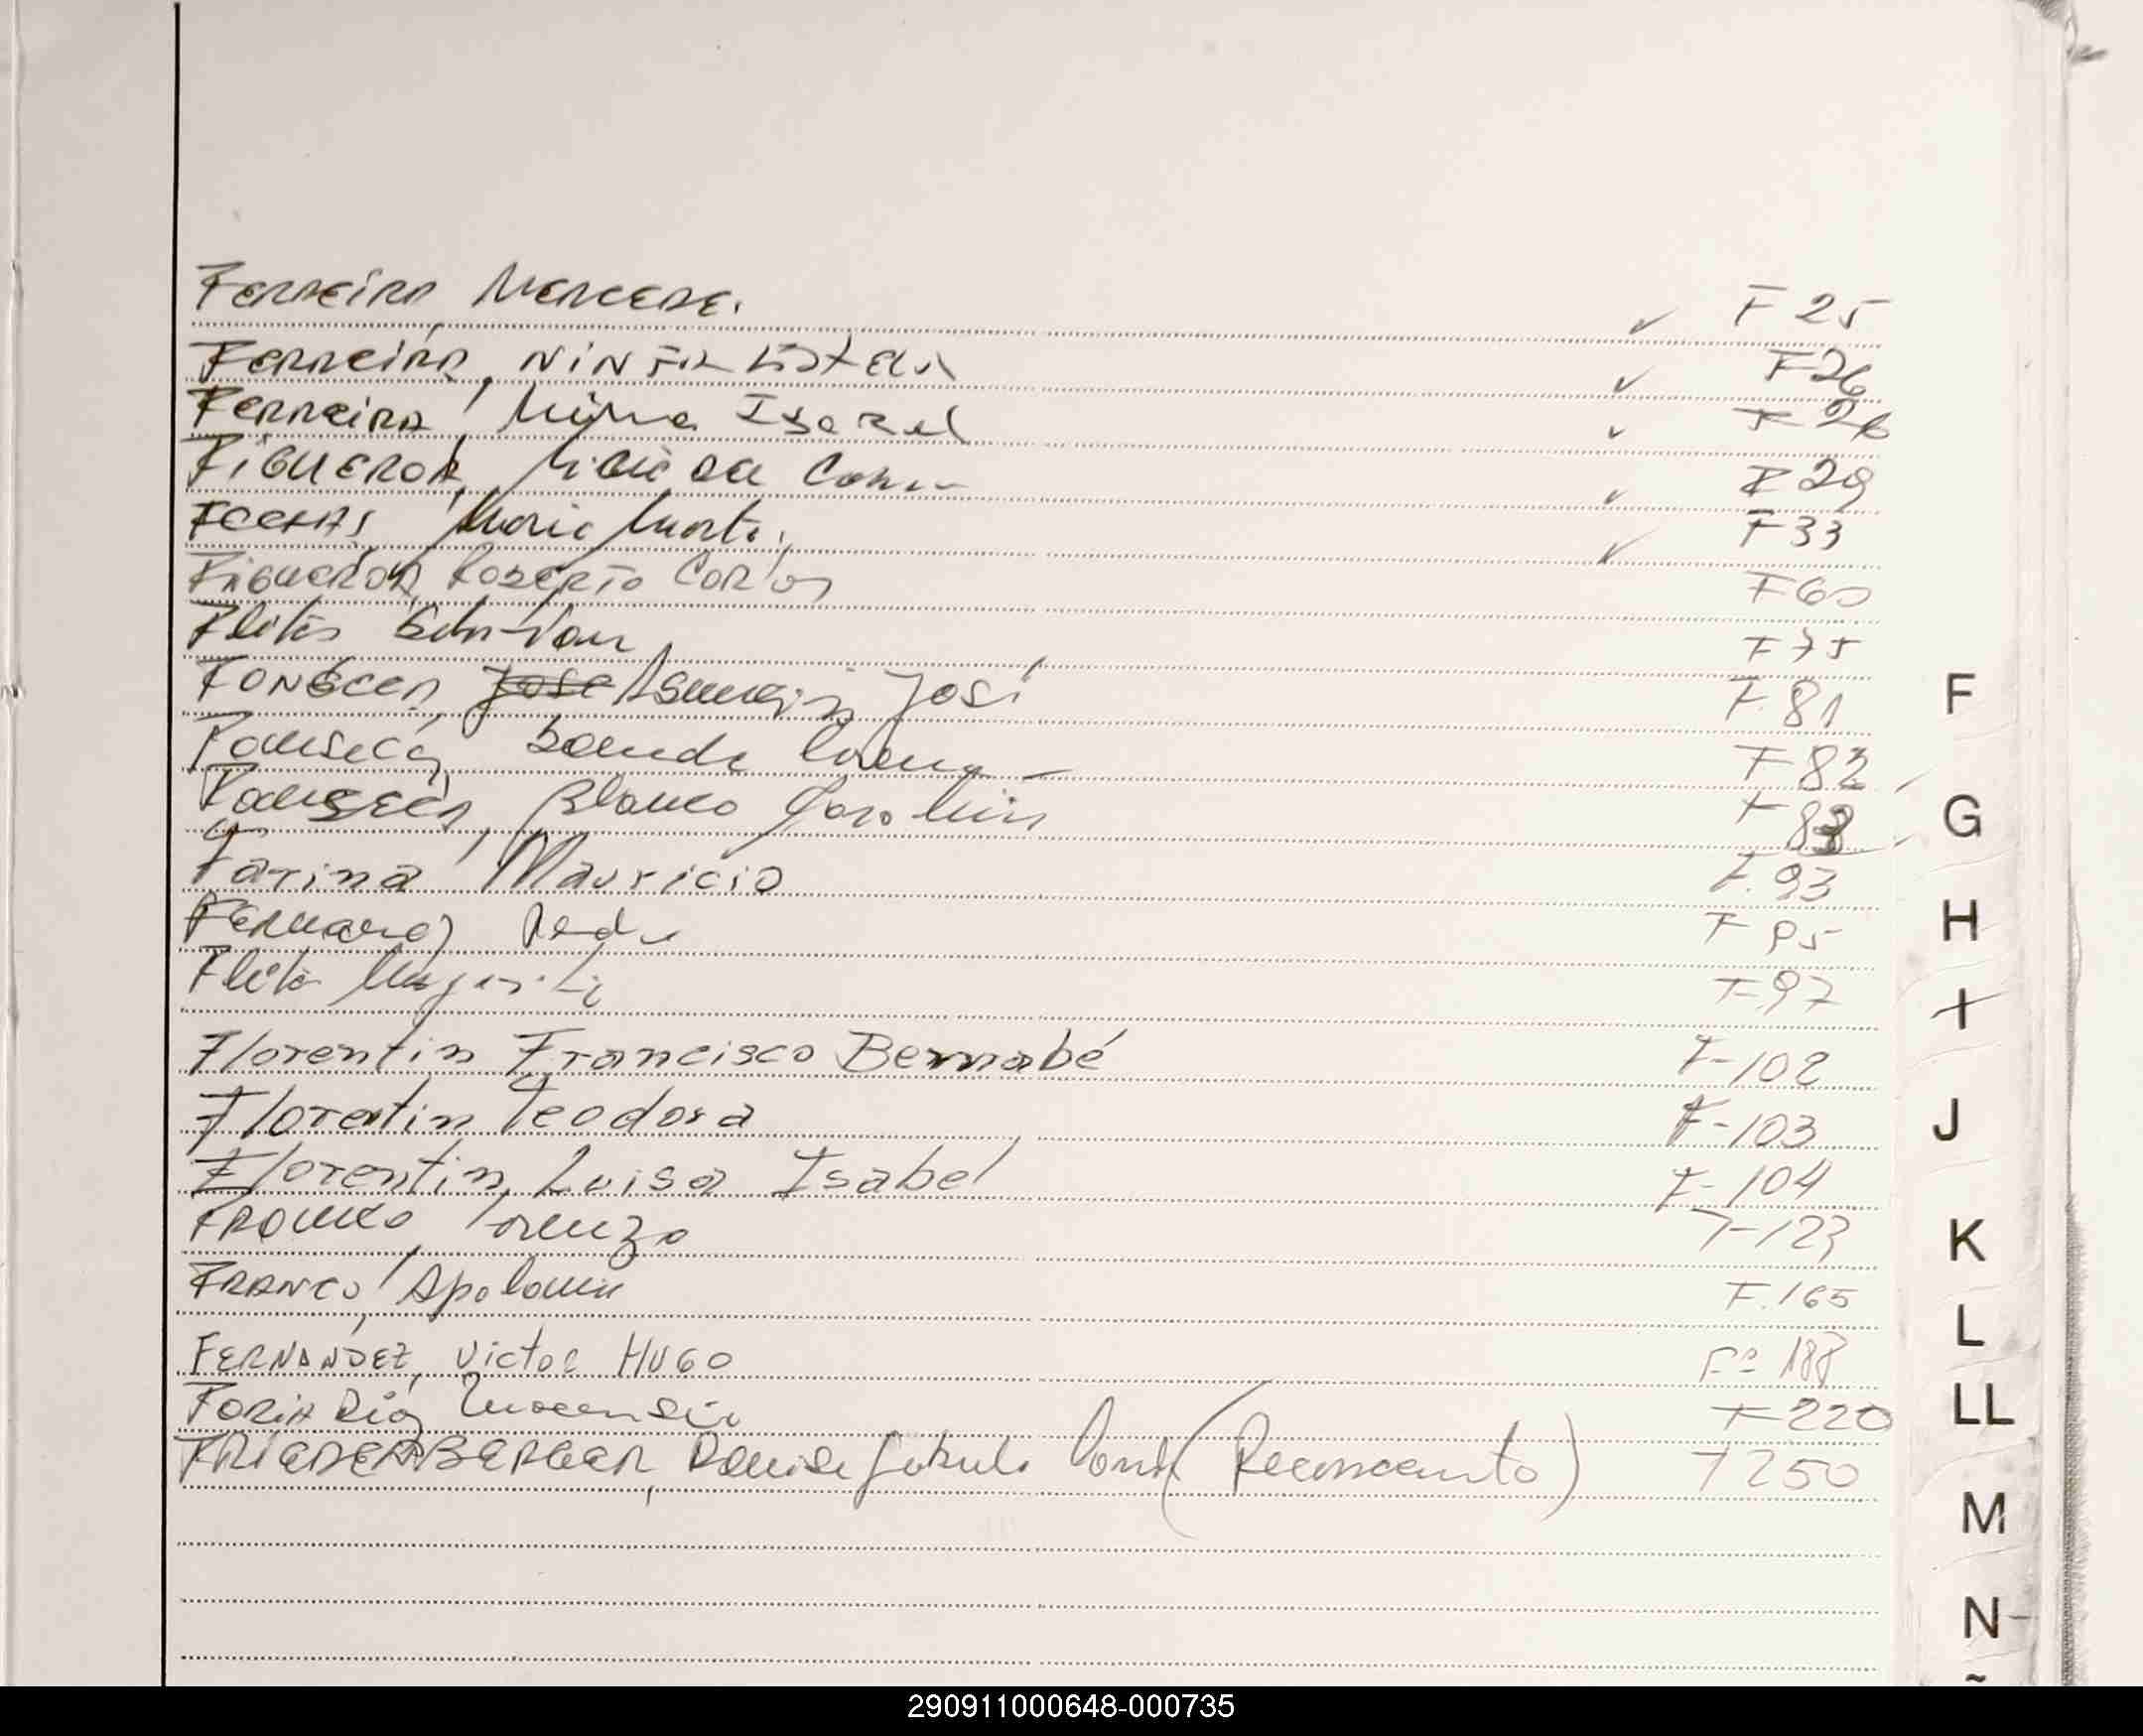 Ferreira Mercede. ✓ F 25
Ferreira, Ninfa Estela ✓ F 26
Ferreira, Mirna Isabel ✓ F 26
Figueroa, del ✓ F 29
Maria Marta ✓ F 33
Figueroa, Roberto Carlos F 60
Fleitas F 75
Fonseca, Jose Asunción José F. 81
Fonseca, Lorena F 82
Fonseca, Blanca Carolina F 83
Farina Mauricio F. 93
Fernandez Pedro F 95
Fleitas Margarita F 97
Florentin Francisco Bernabé F-102
Florentin Teodora F-103
Florentin, Luisa Isabel F-104
Franco, Lorenzo F-123
Franco, Apolonia F. 165
Fernandez, Victor Hugo Fº 188
Foria Diaz Inocencia F 220
Friedenberger, Denise (Reconocimiento) F 250
F
G
H
I
J
K
L
LL
M
N
290911000648-000735